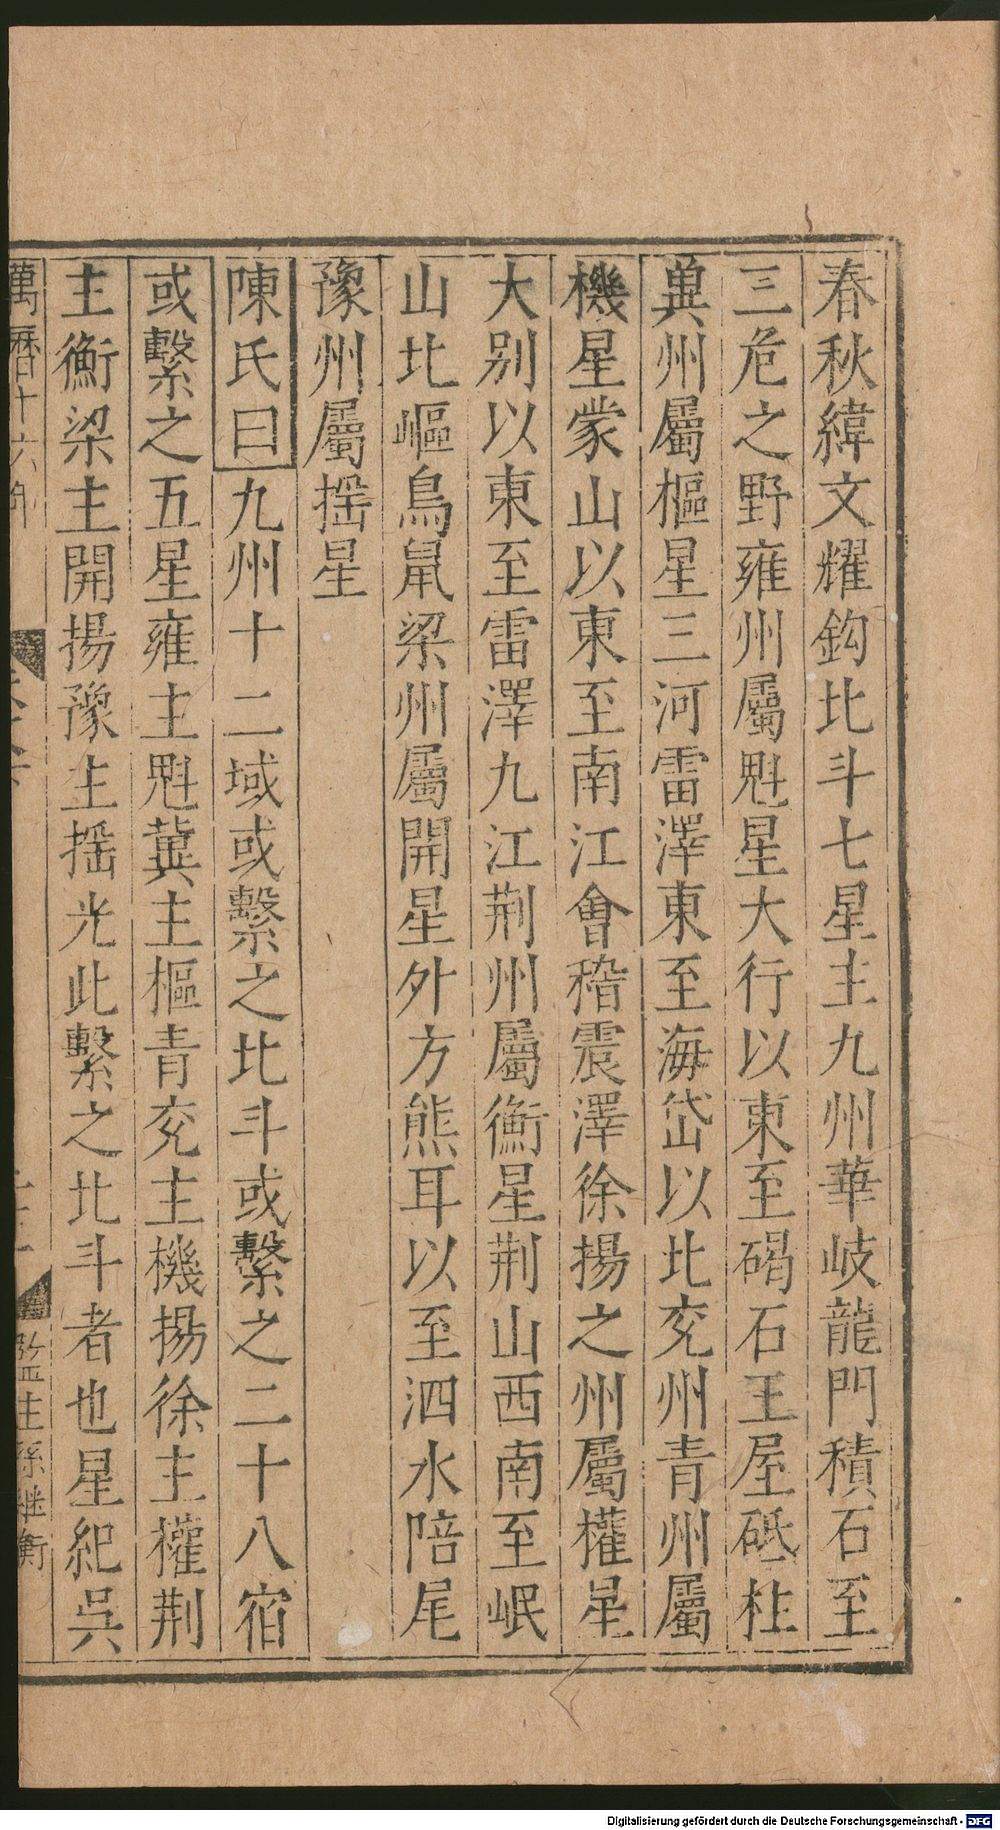 春秋緯文耀鈎北斗七星主九州華岐龍門積石至
三危之野雍州屬魁星大行以東至碣石王屋砥柱
兾州屬樞星三河雷澤東至海岱以北兖州青州屬
機星蒙山以東至南江會稽震澤徐揚之州屬權星
大别以東至雷澤九江荆州屬衡星荆山西南至岷
山北嶇鳥鼠梁州屬開星外方熊耳以至泗水陪尾
豫州屬摇星
陳氏曰九州十二域或繫之北斗或繫之二十八宿
或繫之五星雍主魁冀主樞青兖主機揚徐主權荆
主衡梁主開揚豫主摇光此繫之北斗者也星紀呉
萬曆十六年
監生孫継衡
Digitalisierung gefördert durch die Deutsche Forschungsgemeinschaft - DFG